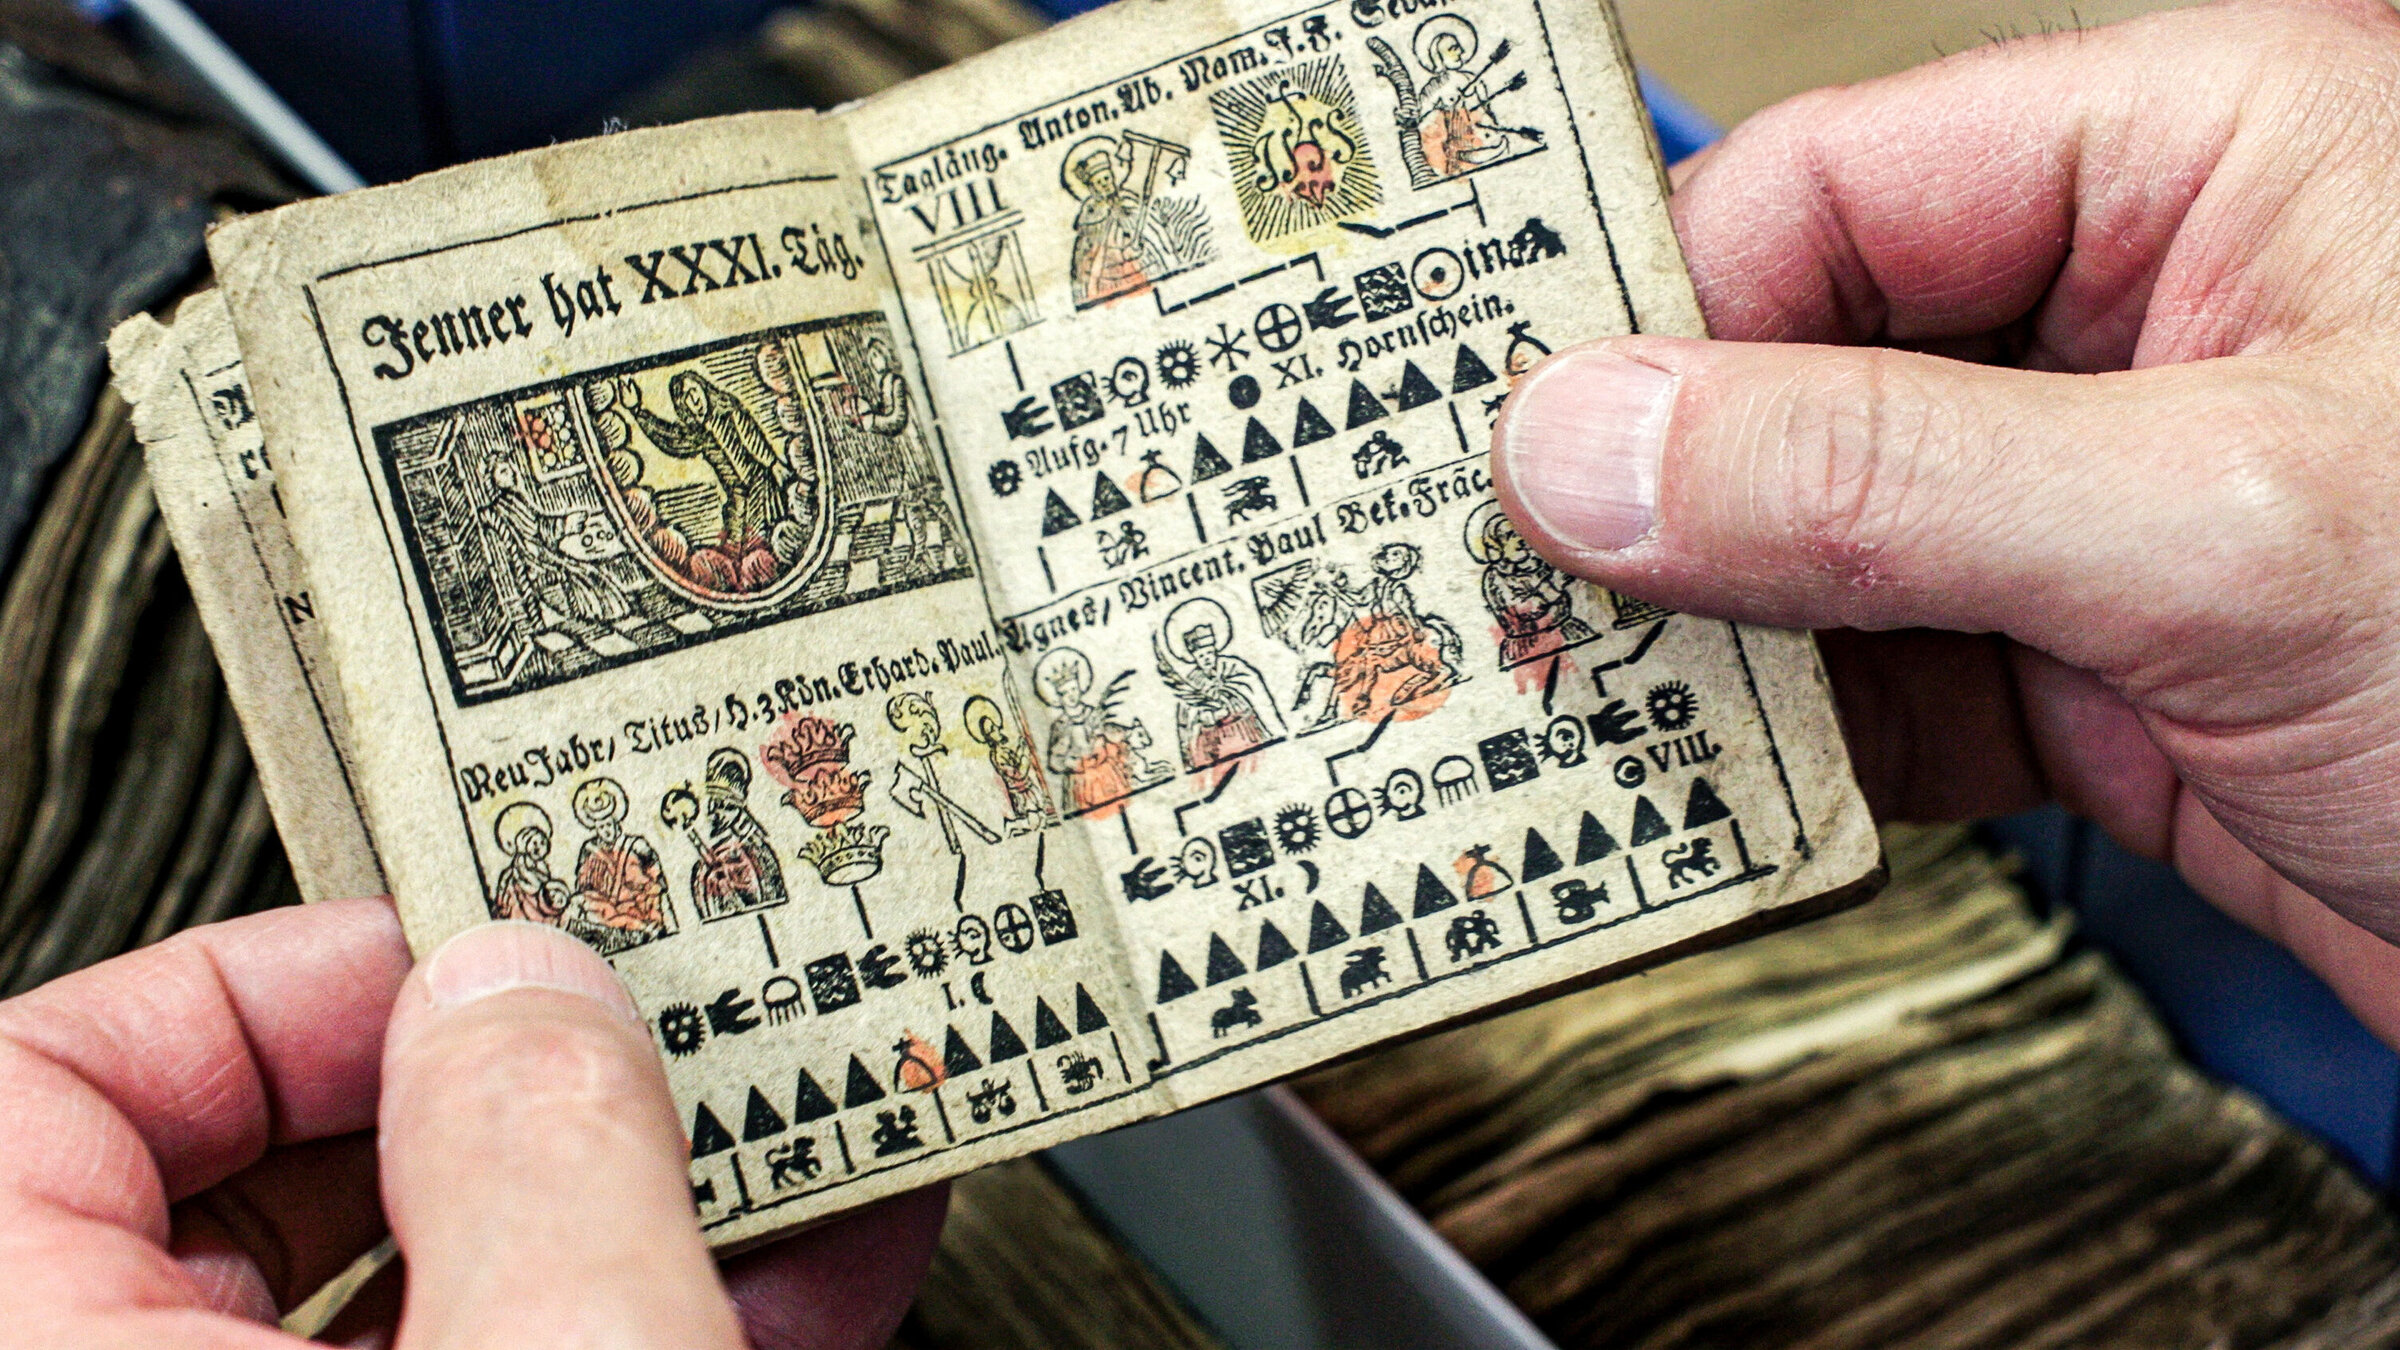 Jenner hat XXXI. Täg.
Neu Jahr/ Titus/ H. 3 Kön. Erhard. Paul.
I.
Tagläng. Anton. Ab. Nam. J. F.
VIII
IHS
in
Aufg. 7 Uhr XI. Hornschein.
Agnes/ Vincent. Paul Bek. Fräc.
XI. VIII.
N